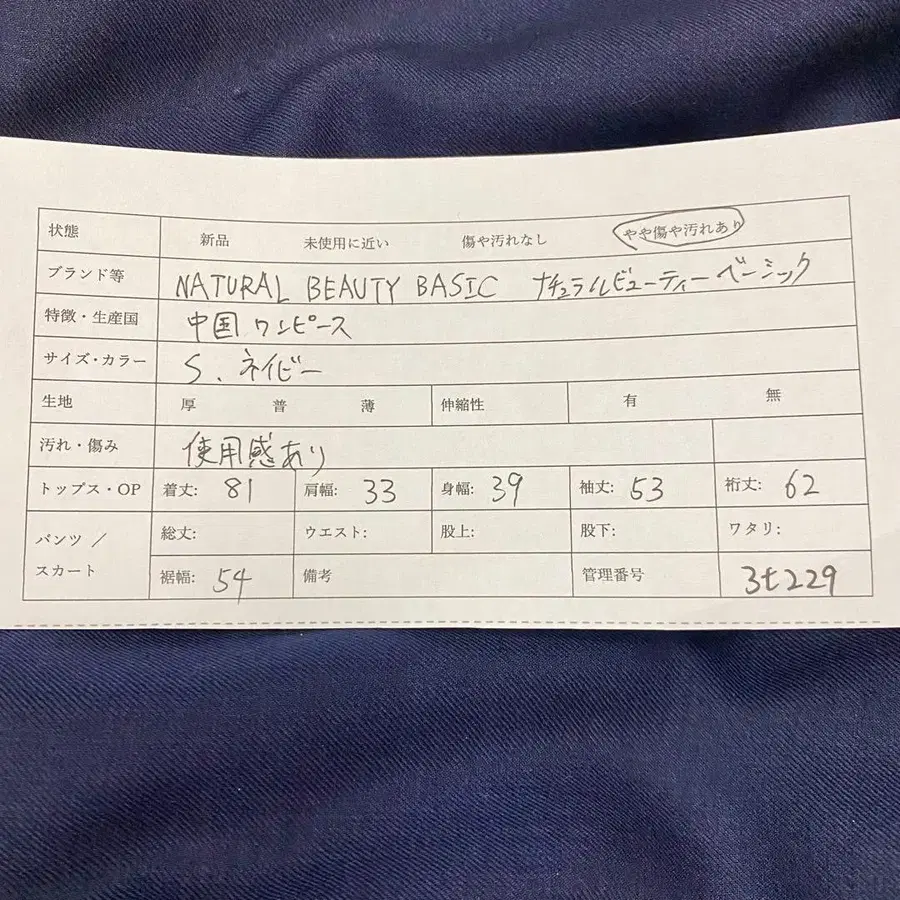 状態 新品 未使用に近い 傷や汚れなし やや傷や汚れあり
ブランド等 NATURAL BEAUTY BASIC ナチュラルビューティーベーシック
特徴・生産国 中国 ワンピース
サイズ・カラー S、ネイビー
生地 厚 普 薄 伸縮性 有 無
汚れ・傷み 使用感あり
トップス・OP 着丈: 81 肩幅: 33 身幅: 39 袖丈: 53 裄丈: 62
パンツ／ 総丈: ウエスト: 股上: 股下: ワタリ:
スカート 裾幅: 54 備考 管理番号 3t229